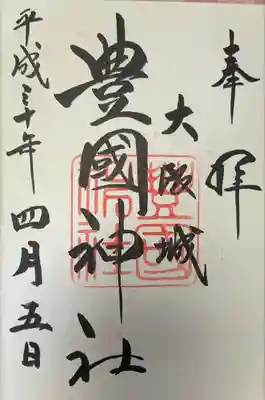 奉拝
大阪城
豊國神社
平成三十年四月五日